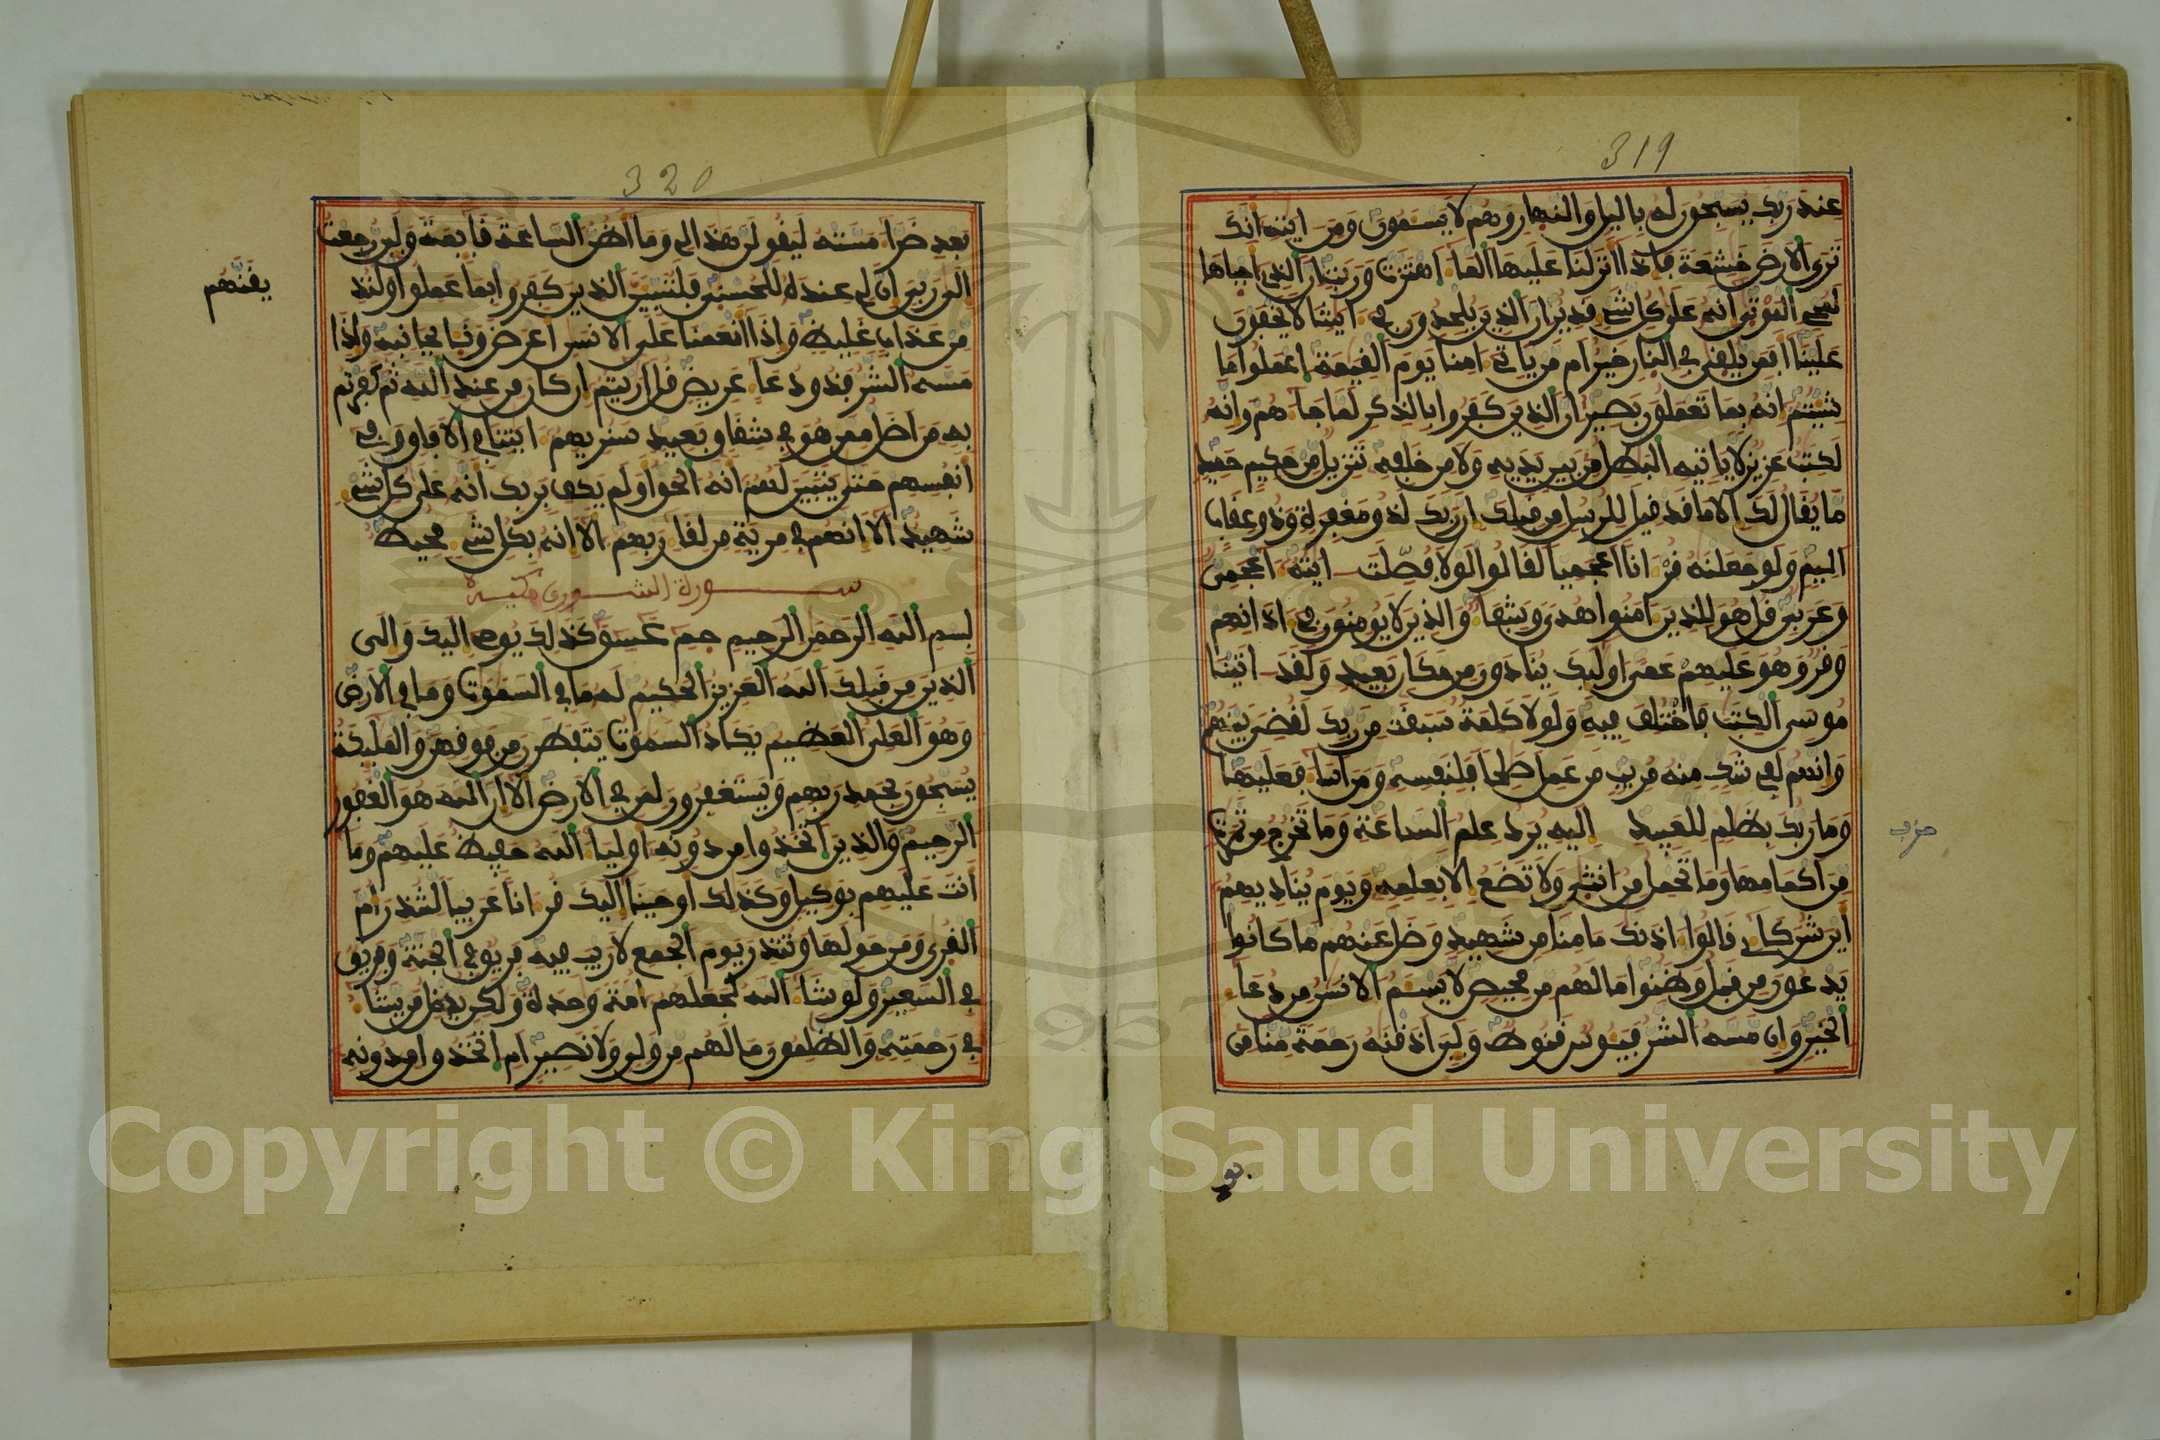 319
عند ربك يسبحون له باليل والنهار وهم لا يسمون ومن ايته انك
ترى الارض خشعة فاذا انزلنا عليها الما اهتزت وربت ان الذي احياها
لمحي الموتى انه على كل شي قدير ان الذين يلحدون في ايتنا لا يخفون
علينا افمن يلقى في النار خير ام من ياتي امنا يوم القيمة اعملوا ما
شيتم انه بما تعملون بصير ان الذين كفروا بالذكر لما جاهم وانه
لكتب عزيز لا ياتيه البطل من بين يديه ولا من خلفه تنزيل من حكيم حميد
ما يقال لك الا ما قد قيل للرسل من قبلك ان ربك لذو مغفرة وذو عقاب
اليم ولو جعلنه قرانا اعجميا لقالوا لولا فصلت ايته اعجمي
وعربي قل هو للذين امنوا هدى وشفا والذين لا يومنون في اذانهم
وقر وهو عليهم عمى اوليك ينادون من مكان بعيد ولقد اتينا
موسى الكتب فاختلف فيه ولولا كلمة سبقت من ربك لقضي بينهم
وانهم لفي شك منه مريب من عمل صلحا فلنفسه ومن اسا فعليها
وما ربك بظلم للعبيد اليه يرد علم الساعة وما تخرج من ثمرت
من اكمامها وما تحمل من انثى ولا تضع الا بعلمه ويوم يناديهم
اين شركاي قالوا اذنك ما منا من شهيد وضل عنهم ما كانوا
يدعون من قبل وظنوا ما لهم من محيص لا يسم الانسن من دعا
الخير وان مسه الشر فيوس قنوط ولين اذقنه رحمة منا من
حزب
بعد
320
بعد ضرا مسته ليقولن هذا لي وما اظن الساعة قايمة ولين رجعت
الى ربي ان لي عنده للحسنى فلننبين الذين كفروا بما عملوا ولنذ
من عذاب غليظ واذا انعمنا على الانسن اعرض ونا بجانبه واذا
مسه الشر فذو دعا عريض قل اريتم ان كان من عند الله ثم كفرتم
به من اضل ممن هو في شقاق بعيد سنريهم ايتنا في الافاق وفي
انفسهم حتى يتبين لهم انه الحق اولم يكف بربك انه على كل شي
شهيد الا انهم في مرية من لقا ربهم الا انه بكل شي محيط
سورة الشورى مكية
بسم الله الرحمن الرحيم حم عسق كذلك يوحى اليك والى
الذين من قبلك الله العزيز الحكيم له ما في السموت وما في الارض
وهو العلي العظيم يكاد السموت يتفطرن من فوقهن والمليكة
يسبحون بحمد ربهم ويستغفرون لمن في الارض الا ان الله هو الغفور
الرحيم والذين اتخذوا من دونه اوليا الله حفيظ عليهم وما
انت عليهم بوكيل وكذلك اوحينا اليك قرانا عربيا لتنذر ام
القرى ومن حولها وتنذر يوم الجمع لا ريب فيه فريق في الجنة وفريق
في السعير ولو شا الله لجعلهم امة وحدة ولكن يدخل من يشا
في رحمته والظلمون ما لهم من ولي ولا نصير ام اتخذوا من دونه
يقنهم
Copyright © King Saud University
1957